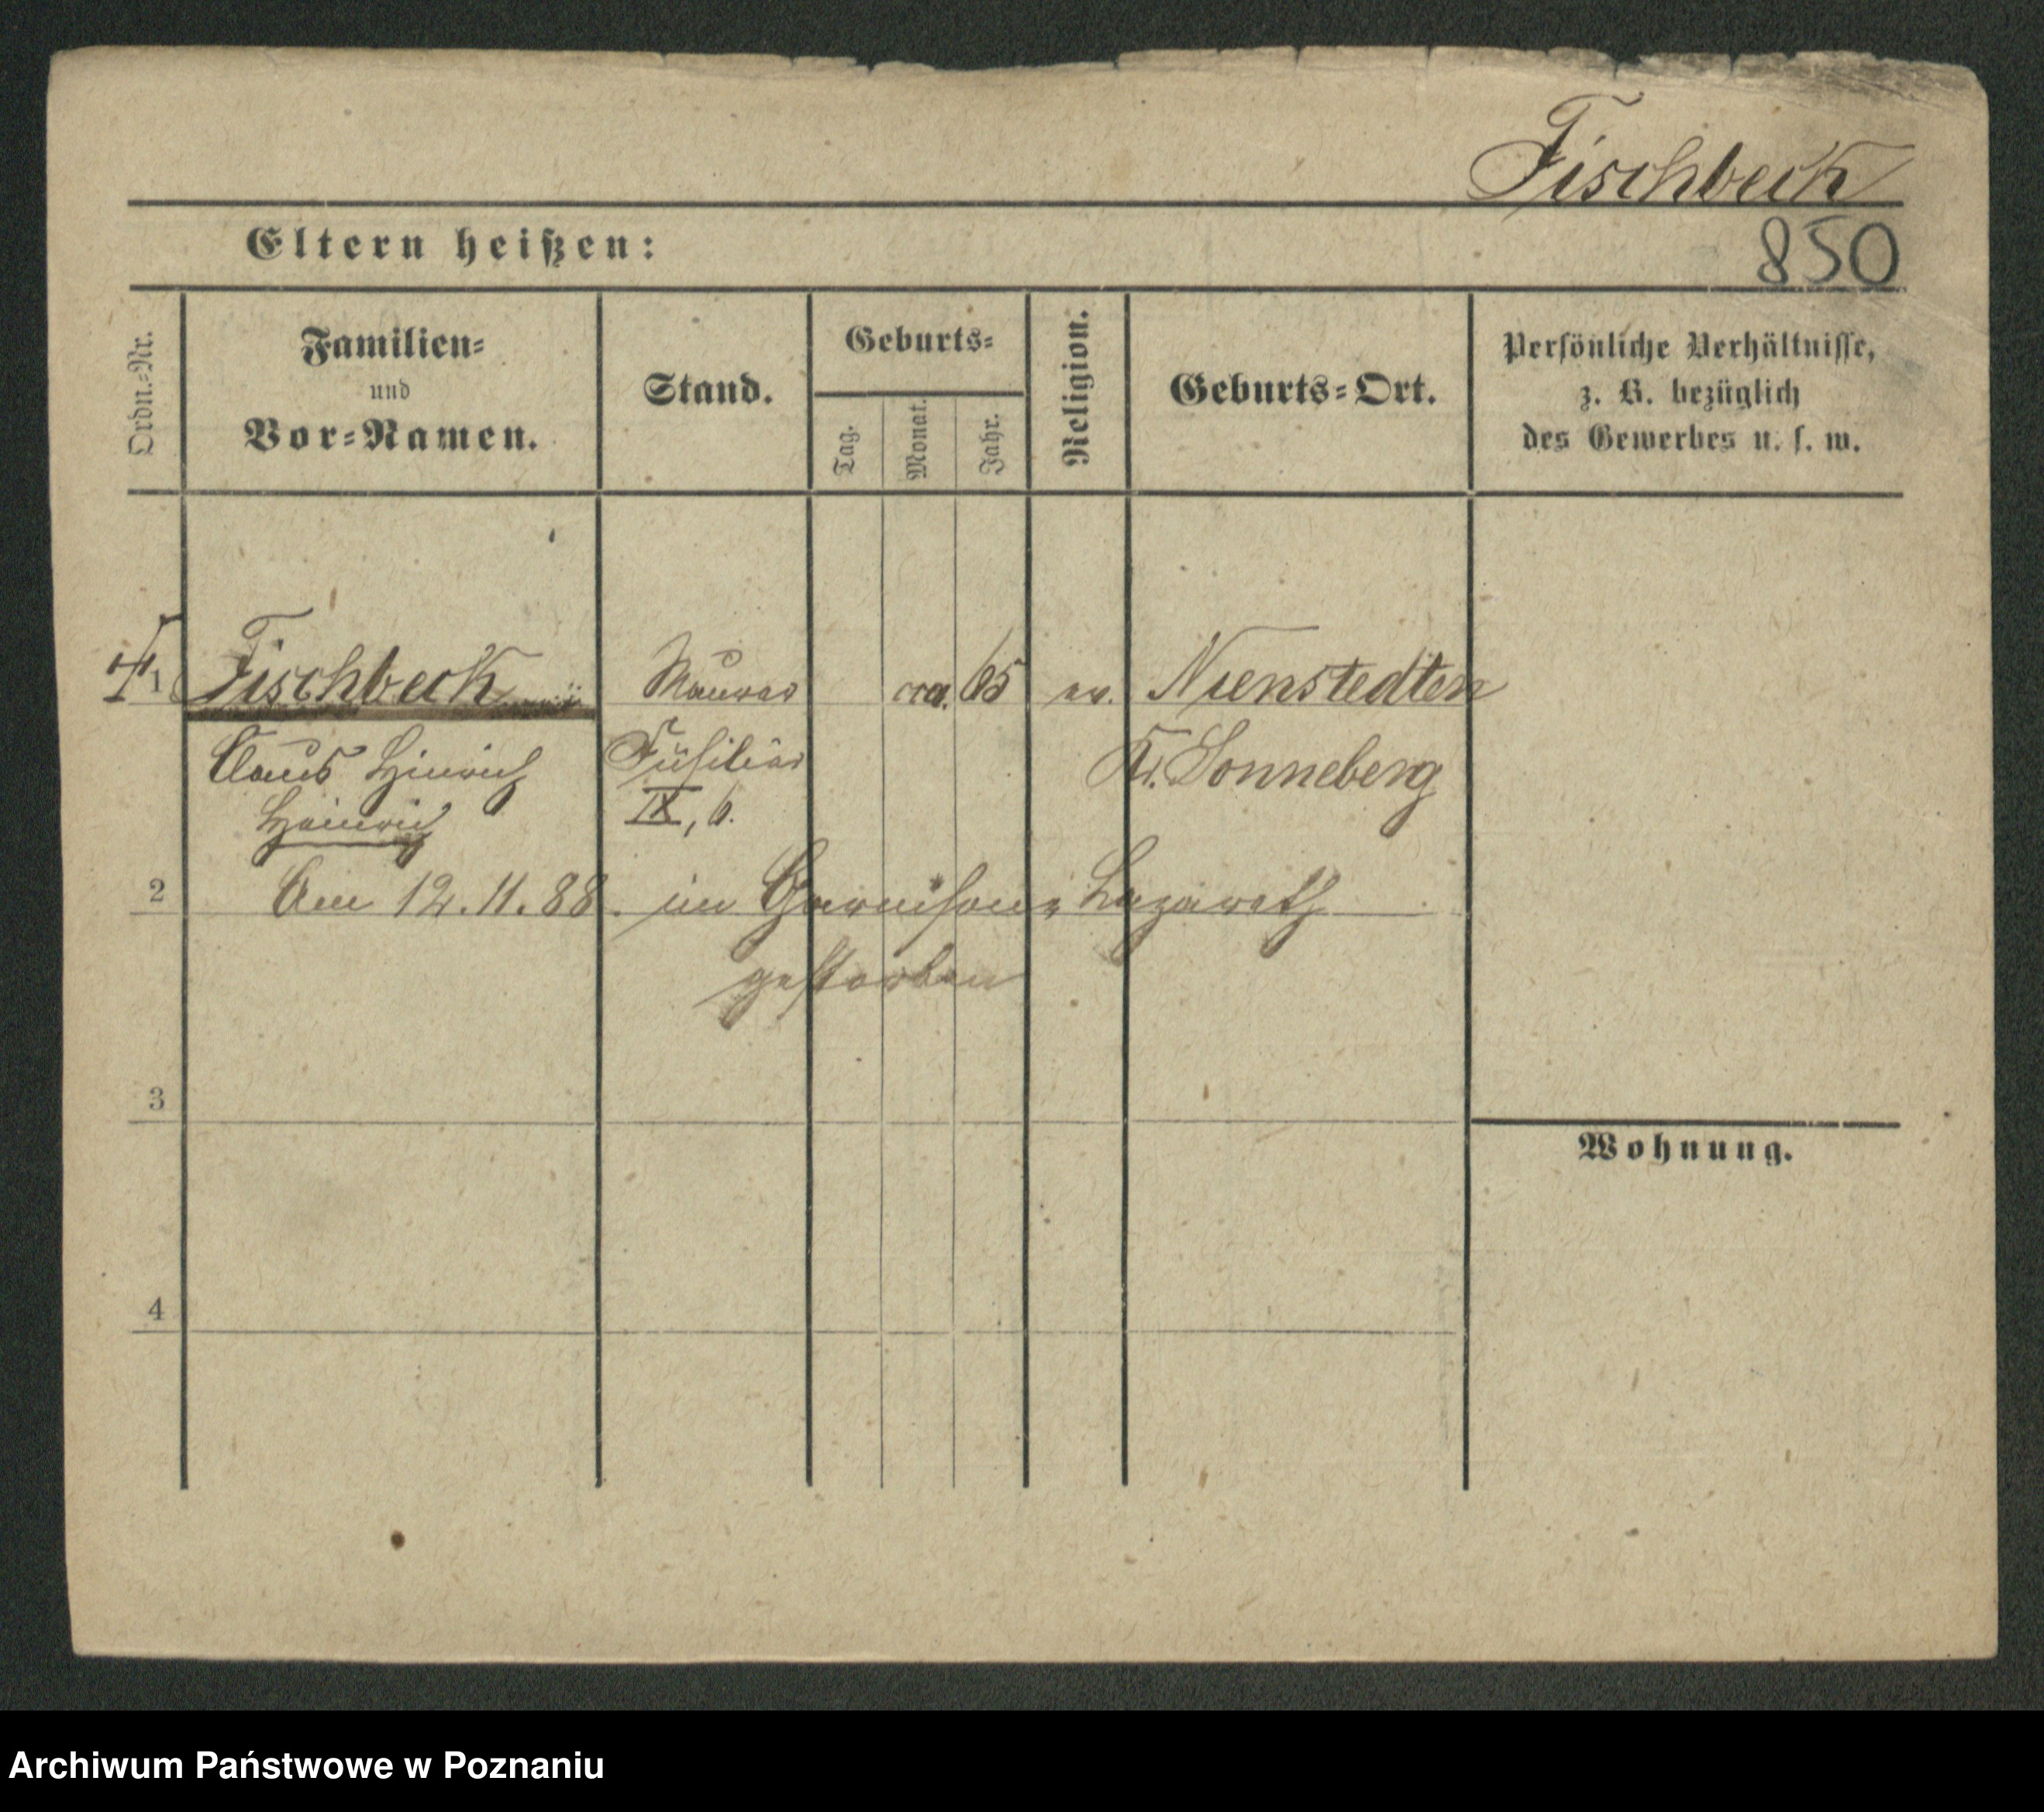 Fischbeck
Eltern heißen:
850
Ordn.=Nr.
Familien=
und
Vor=Namen.
Stand.
Geburts=
Tag.
Monat.
Jahr.
Religion.
Geburts=Ort.
Persönliche Verhältnisse,
z. B. bezüglich
des Gewerbes u. s. w.
1 Fischbeck Maurer cca. 65 ev. Nienstedten
Claus Hinrich Füsilier Kr. Sonneberg
Heinrich IX, 6.
2 Am 12.11.88. im Garnison= Lazareth
gestorben
3
Wohnung.
4
Archiwum Państwowe w Poznaniu